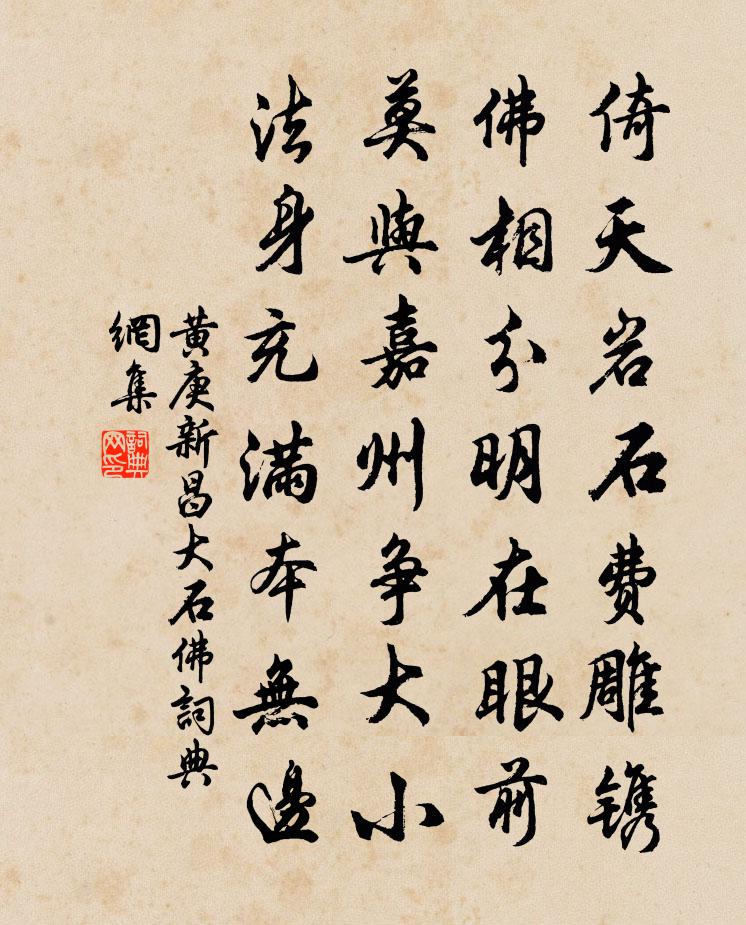 倚天岩石费雕镌
佛相分明在眼前
莫與嘉州争大小
法身充满本無邊
黄庚新昌大石佛詞典
網集
詞典
网印